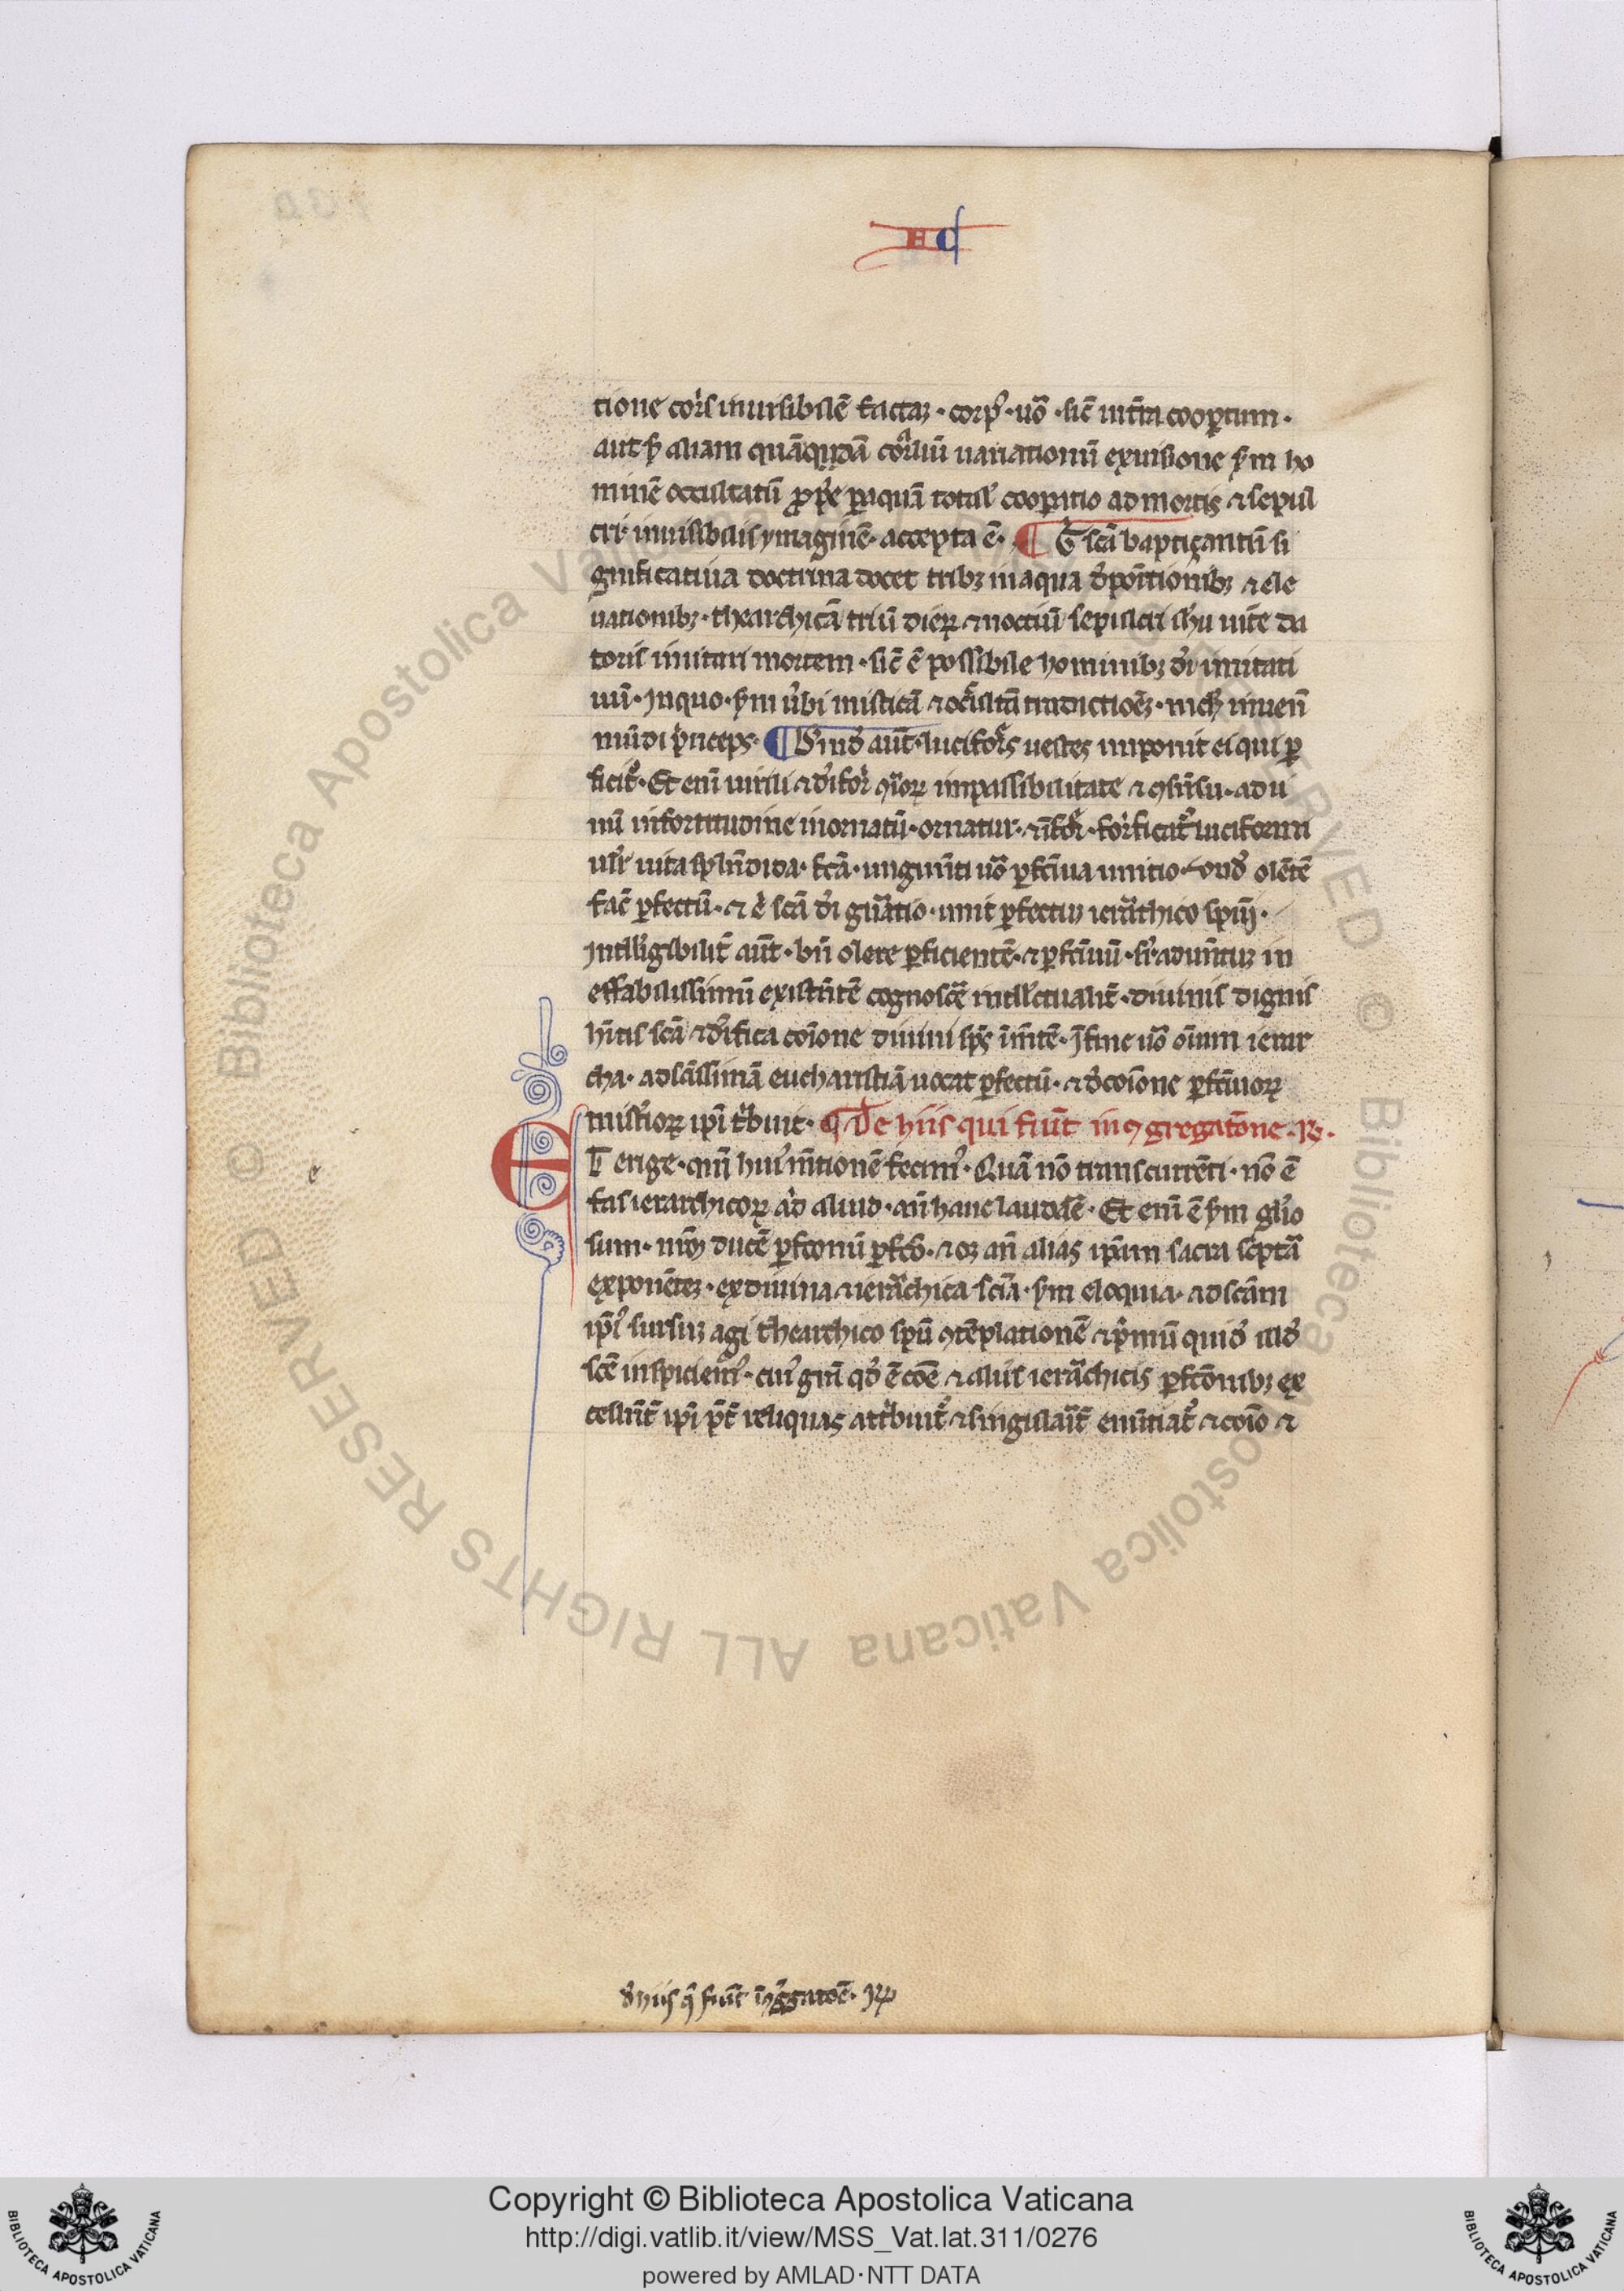 H d
tione cor͛is inuisibilē factaꝫ · corpꝰ · uō · sic̄ in t̄ra coop̱tum ·
aut ẜm aliam quā q̱dā cor͛aliū uariationū exuisione ẜm ho
minē occultatū ꝓp͛e p̱ aquā total̕ coop̱tio ad mortis ⁊ sepul
cri · inuisibilis ymaginē · accepta ē · ¶ G͛ sc̄a baptiçantiū si
gnificatiua doctrina docet tribꝫ in aqua dep̄oitionibꝫ ⁊ ele
uationibꝫ · thearchicā triū dieꝝ ⁊ noctiū sepulcri ih̄u uite da
toris imitari mortem · sic̄ ē possibile hominibꝫ dei imitati
uū · In quo · ẜm u͛bi misticā ⁊ occ͛ltā traditioēꝫ · nich̕ inuen̄
mūdi p͛nceps · ¶ Dein͛d aūt · lucifor͛s uestes imponit ei qui p̱
ficit͛ · Et enī uirili ⁊ deifor͛
mū in fortitudine inornatū · ornatur · ⁊ īfor͛ · for͛ficat͛ luciforam
ul̕r uita splēdida · fc̄a · unguēti uō p̱fc̄iua unctio · uald̕ olētē
fac̄ p̱fectū · ⁊ ē͛ sc̄a dei gn̄atio · unit p̱fectuꝫ ier͛archico spiri ·
Intelligibilit̄ aūt · bn̄ olere p̱ficientē · ⁊ p̱fc̄iuū ·
effabilissimū existētē cognosc̄e intell̕ctualit̄ · diuinis dignis
hn̄tis sc̄a ⁊ deifica coīone diuini sp̄s īm̄tē · I fine uō oīum ierar
cha · ad sc̄issimā eucharistiā uocat p̱fectū · ⁊ de coīone p̱fc̄iuoꝝ
mist͛ioꝝ ip̄i t͛buit · ¶ De hiis qui fiūt in ꝯgregatōne · R̴ ·
ET erige · qm̄ huiꝰ m̄tionē fecimꝰ · Quā nō transcurrēti · nō ē
fas ierarchicoꝝ a͛d aliud · an̄ hanc laudar͛e · Et enī ē ẜm gl̕io
sum · nr̄oꝝ ducē p̱fc̄onū p̱fc̄o · ⁊ oꝫ an̄ alias ip̄am sacra sc͛ptā
exponētes · ex diuina ⁊ ierar͛chica sc̄ia · ẜm eloquia · ad sc̄am
ip̄iꝰ sursuꝫ agi thearchico spū ꝯtēplationē ⁊ p͛mū quid̕ illd̕
sc̄e inspiciemꝰ · cuiꝰ gr̄a qd̕ ē coē ⁊ aliis ierar͛chicis p̱fc̄onibꝫ ex
cellēt̄ ip̄i p̄t̄ reliquas att͛buit͛ ⁊ singular͛it̄ enūtiat͛ ⁊ coīo ⁊
e
d̕ hiis q͛ fiūt ī ꝯg͛gatoē ·
Copyright © Biblioteca Apostolica Vaticana
http://digi.vatlib.it/view/MSS_Vat.lat.311/0276
powered by AMLAD·NTT DATA
BIBLIOTECA APOSTOLICA VATICANA
BIBLIOTECA APOSTOLICA VATICANA
© Biblioteca Apostolica Vaticana ALL RIGHTS RESERVED © Biblioteca Apostolica Vaticana ALL RIGHTS RESERVED